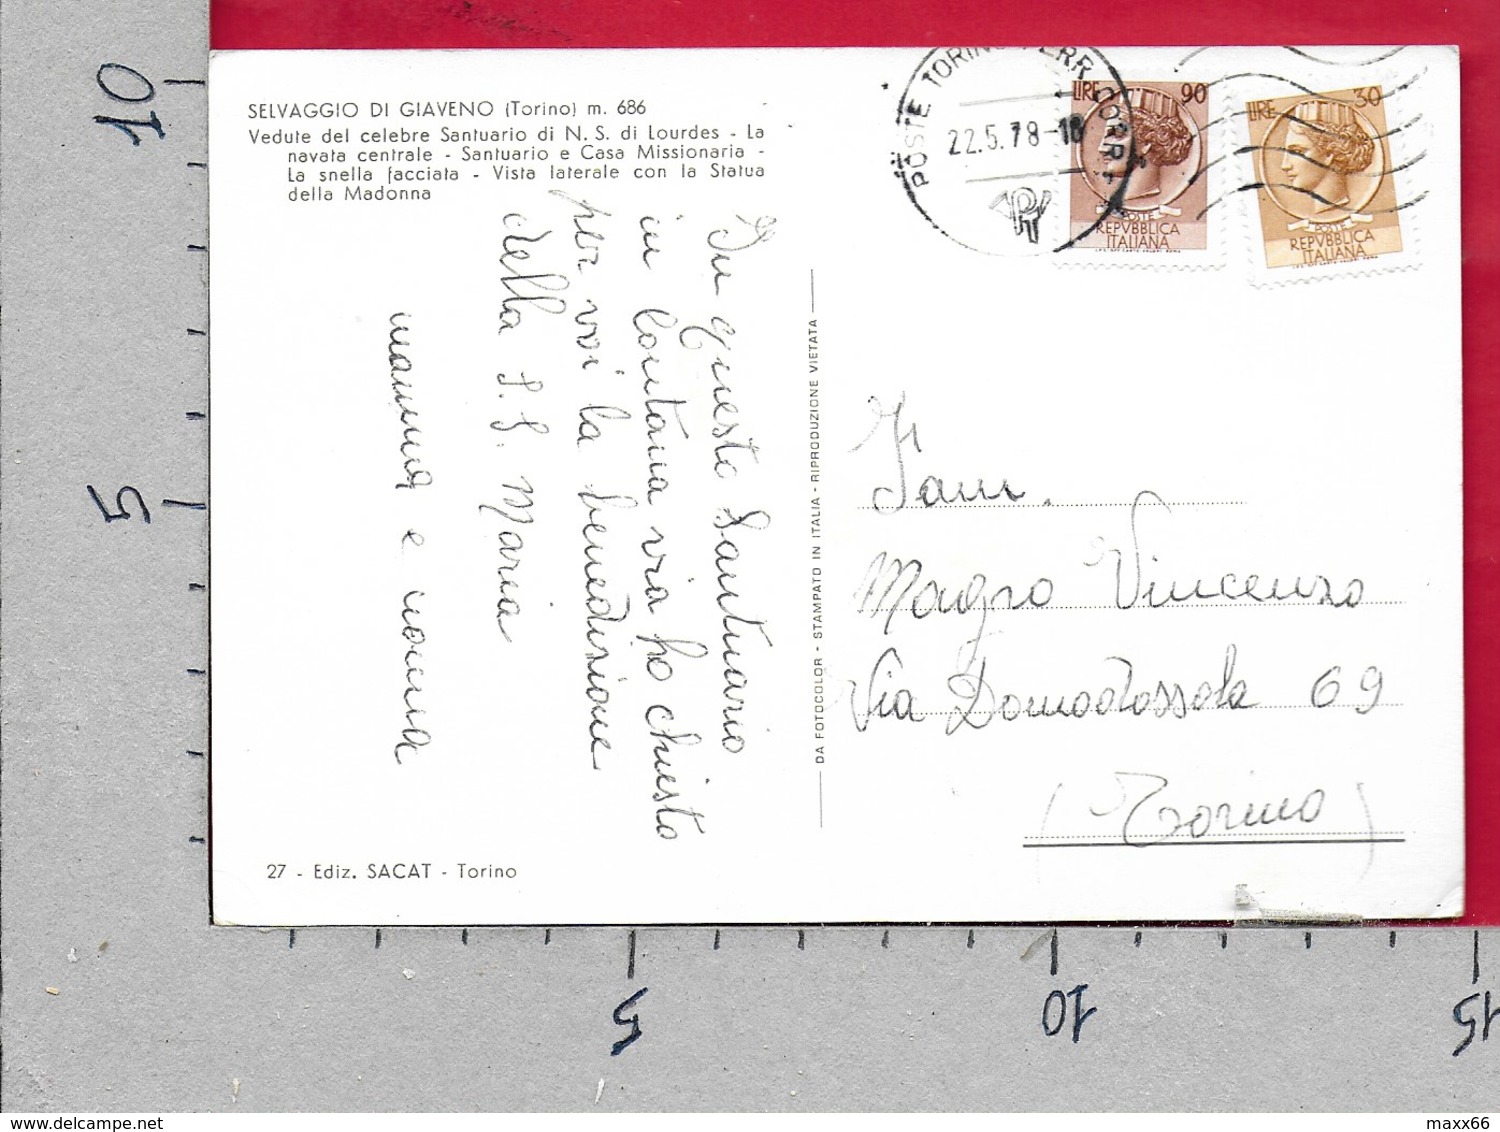 SELVAGGIO DI GIAVENO (Torino) m. 686
Vedute del celebre Santuario di N. S. di Lourdes - La
navata centrale - Santuario e Casa Missionaria -
La snella facciata - Vista laterale con la Statua
della Madonna
In questo Santuario
in lontana via ho chiesto
per voi la benedizione
della S.S. Maria
mamma e nonna
27 - Ediz. SACAT - Torino
DA FOTOCOLOR - STAMPATO IN ITALIA - RIPRODUZIONE VIETATA
POSTE TORINO FERR CORR
22.5.78-18
PT
LIRE 90
POSTE
REPVBBLICA
ITALIANA
LIRE 30
POSTE
REPVBBLICA
ITALIANA
Fam.
Magro Vincenzo
Via Domodossola 69
(Torino)
10
5
5
10
15
delcampe.net
maxx66